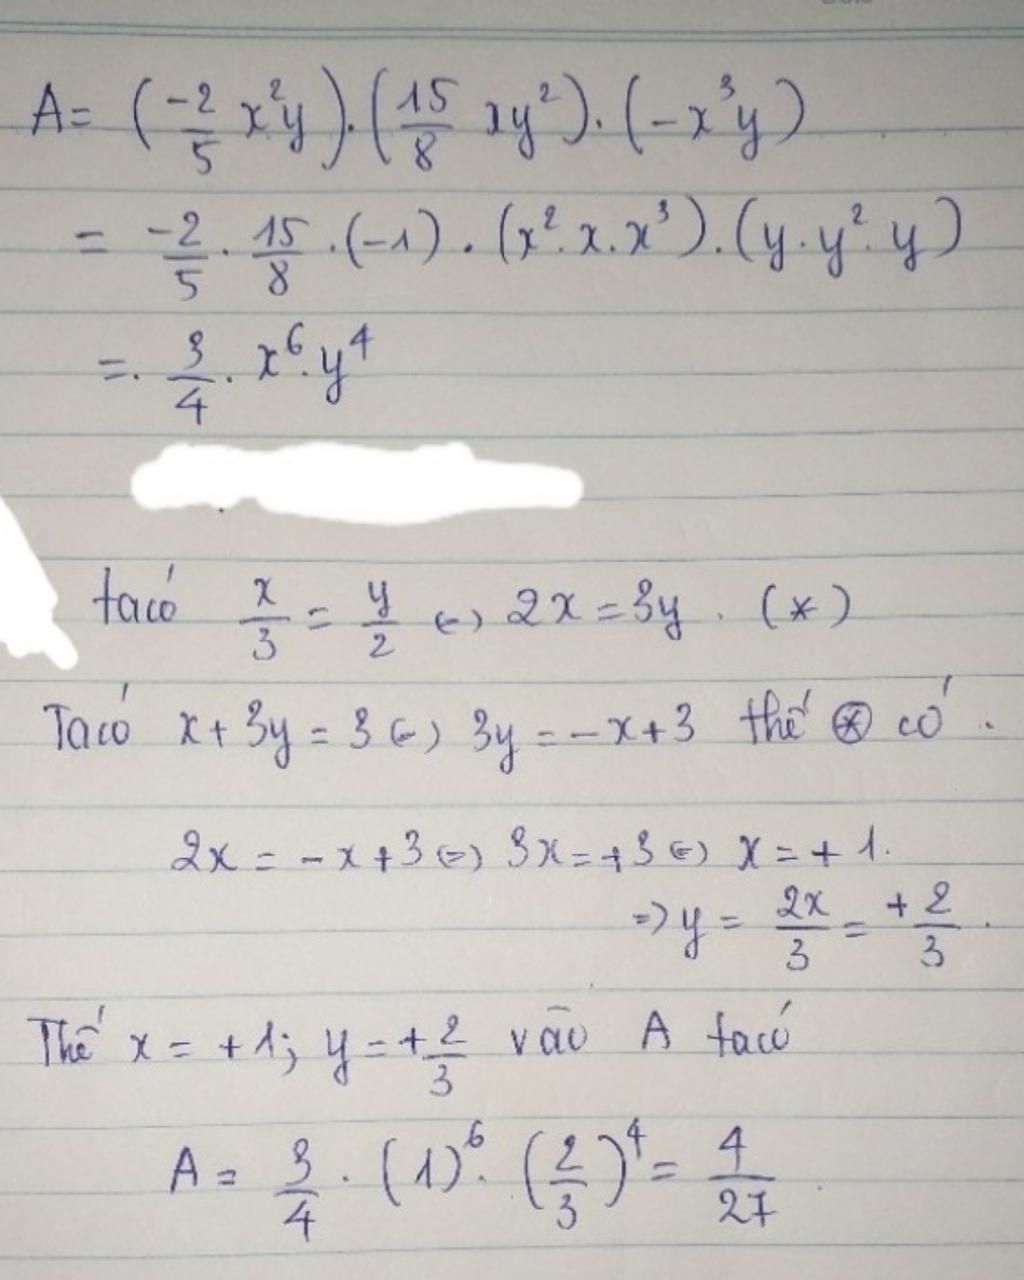 A = (-2/5 x²y).(15/8 xy²).(-x³y)
= -2/5 . 15/8 .(-1) . (x².x.x³).(y.y².y)
=. 3/4 . x⁶.y⁴
ta có x/3 = y/2 <=> 2x = 3y . (*)
Ta có x + 3y = 3 <=> 3y = -x + 3 thế (*) có .
2x = -x + 3 <=> 3x = +3 <=> x = +1.
=> y = 2x/3 = +2/3 .
Thế x = +1; y = +2/3 vào A ta có
A = 3/4 . (1)⁶. (2/3)⁴ = 4/27 .